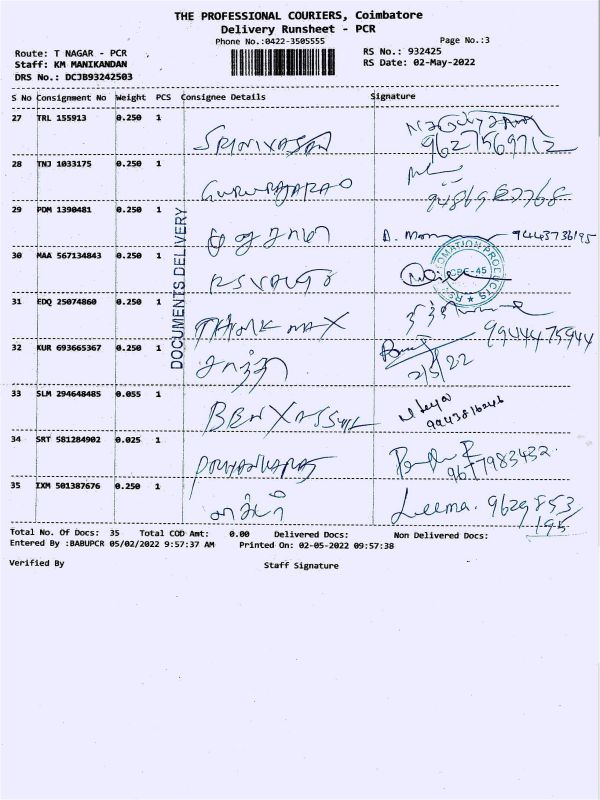 THE PROFESSIONAL COURIERS, Coimbatore
Delivery Runsheet - PCR
Phone No.:0422-3505555
Page No.:3
Route: T NAGAR - PCR
RS No.: 932425
Staff: KM MANIKANDAN
RS Date: 02-May-2022
DRS No.: DCJB93242503
S No Consignment No Weight PCS Consignee Details Signature
27 TRL 155913 0.250 1
SRINIVASAN
9627569712
28 TNJ 1033175 0.250 1
GURURAJARAO
29 PDM 1390481 0.250 1
9443736195
30 MAA 567134843 0.250 1
CBE-45
31 EDQ 25074860 0.250 1
THANK MAX
9944475944
32 KUR 693665367 0.250 1
2/5/22
33 SLM 294648485 0.055 1
9443816246
34 SRT 581284902 0.025 1
9677983432
35 IXM 501387676 0.250 1
Leema. 9629853
195
DOCUMENTS DELIVERY
Total No. Of Docs: 35 Total COD Amt: 0.00 Delivered Docs: Non Delivered Docs:
Entered By :BABUPCR 05/02/2022 9:57:37 AM Printed On: 02-05-2022 09:57:38
Verified By Staff Signature